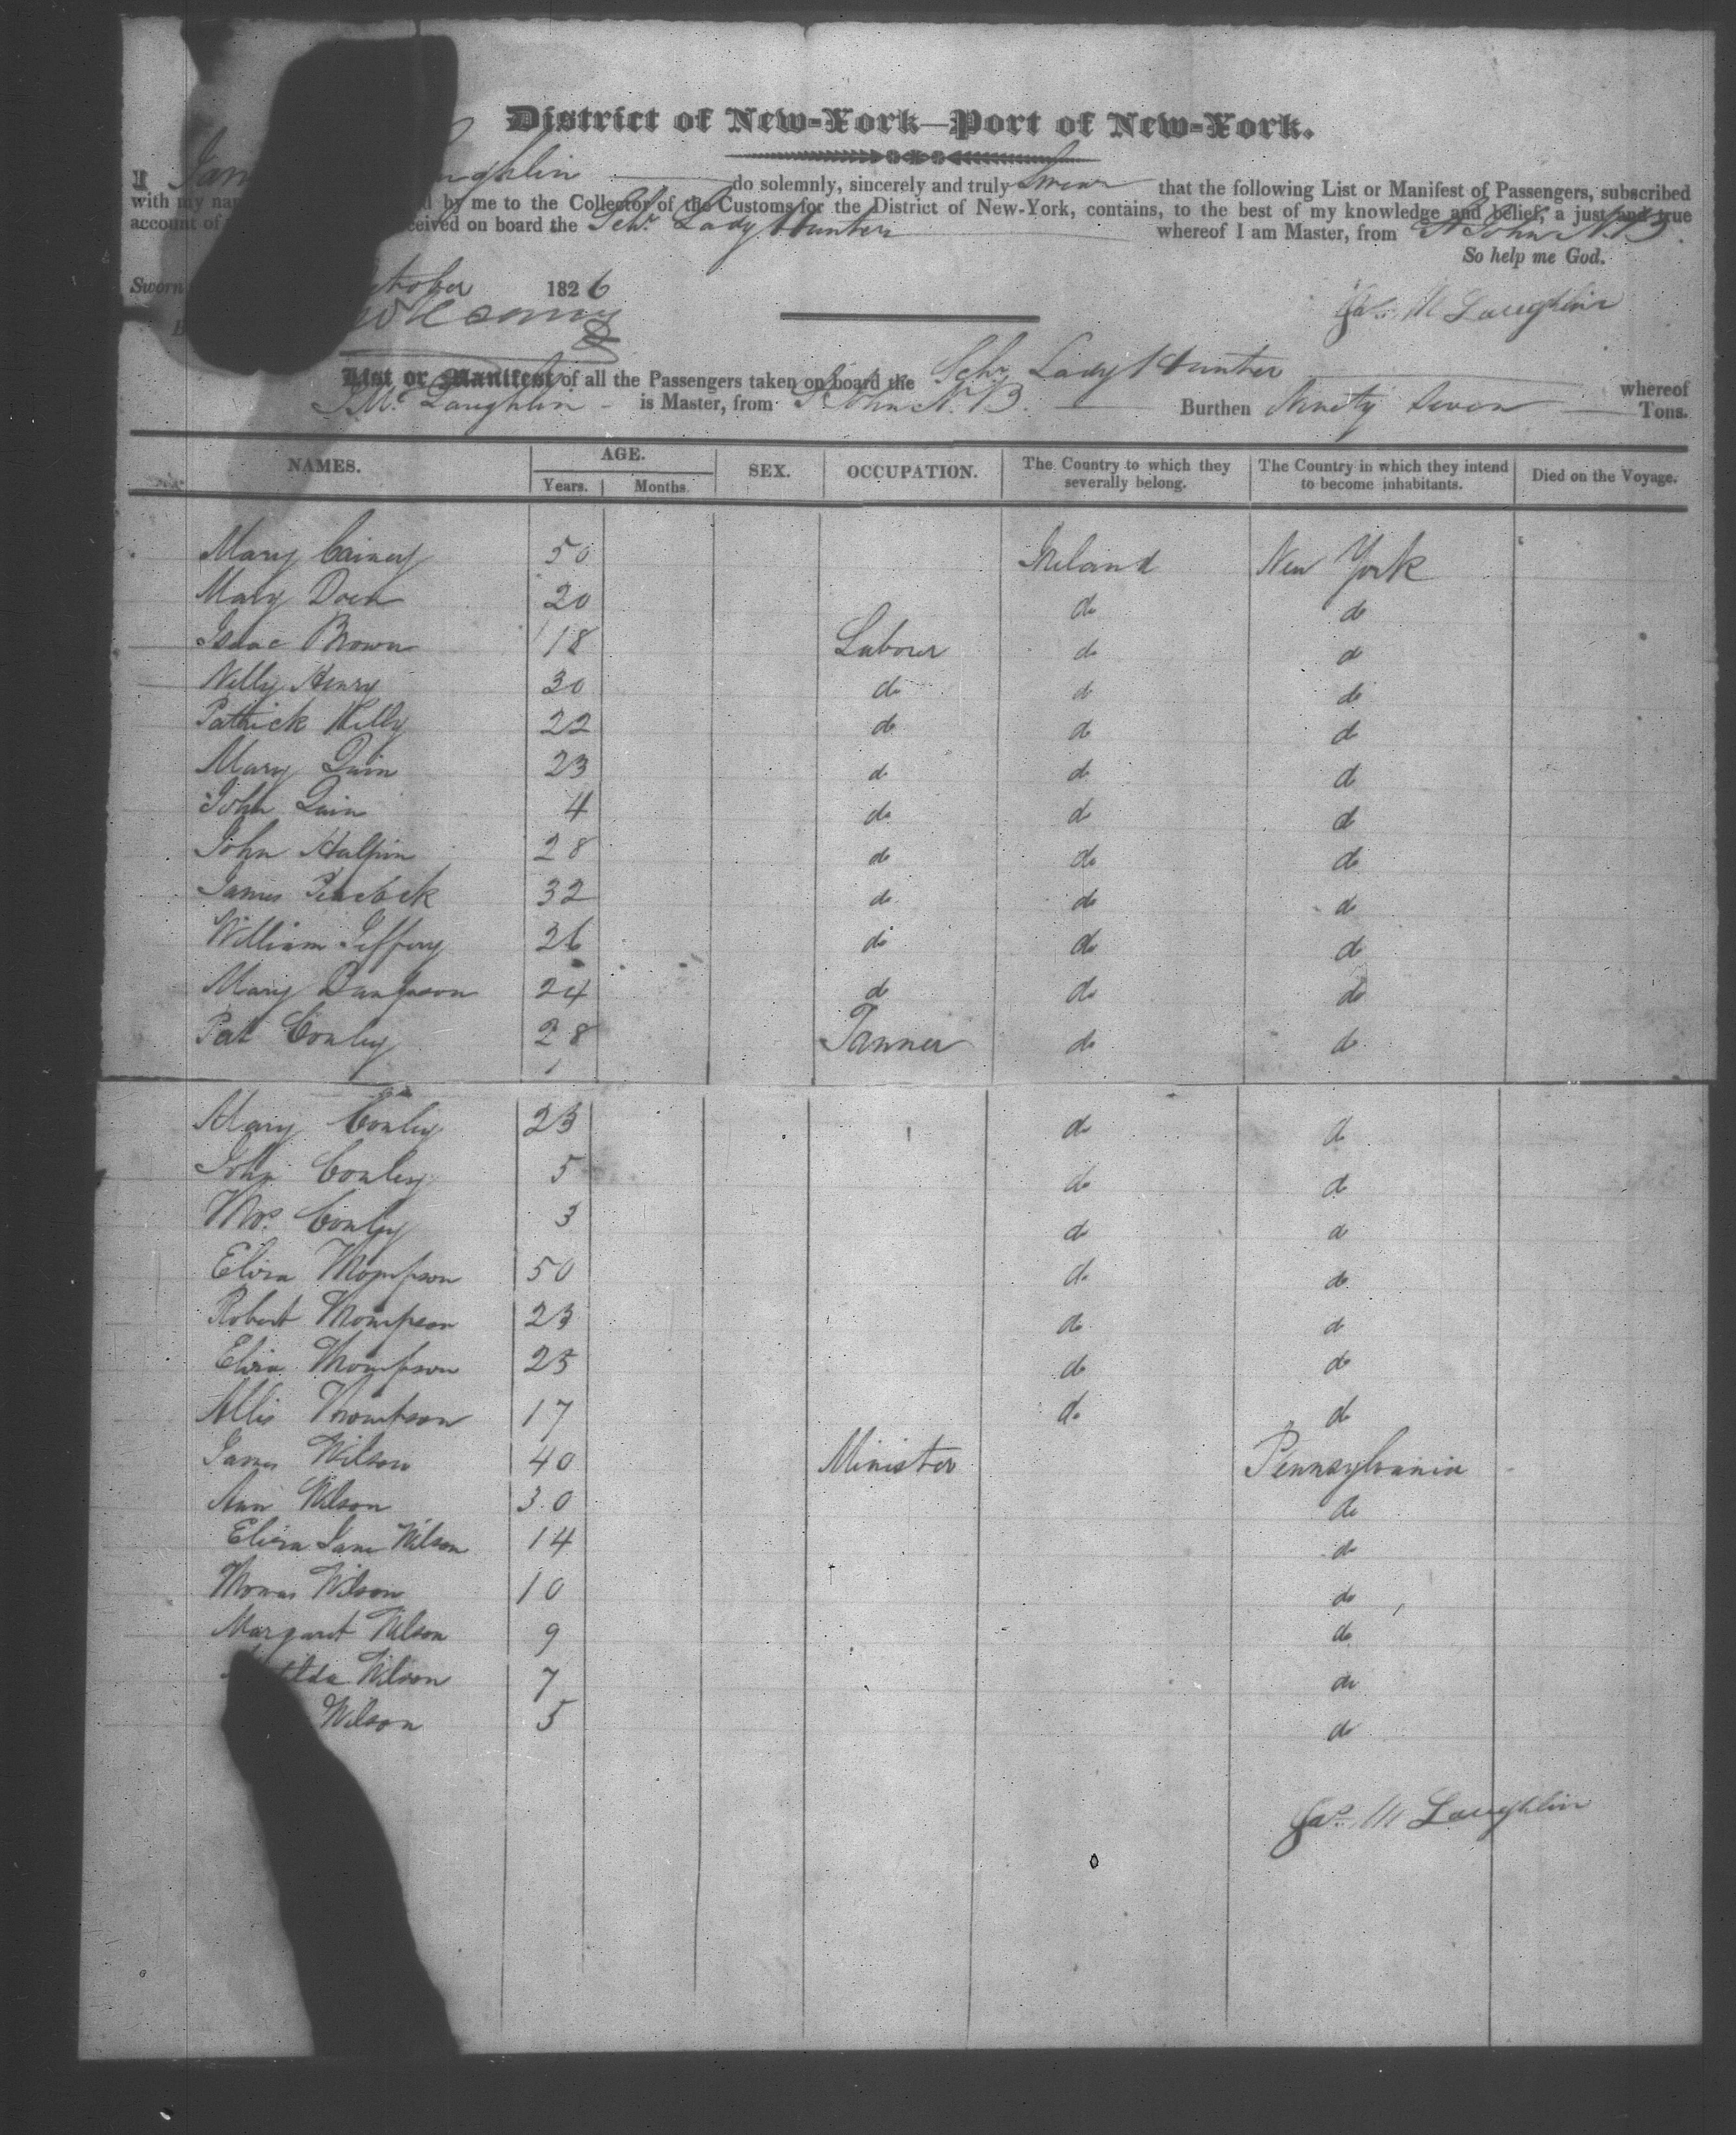 District of New-York—Port of New-York.
I do solemnly, sincerely and truly Swear that the following List or Manifest of Passengers, subscribed
with my by me to the Collector of the Customs for the District of New-York, contains, to the best of my knowledge and belief, a just and true
account of on board the Schr Lady Hunter whereof I am Master, from St John N.B.
So help me God.
Sworn 1826
Jas. McLaughlin
List or Manifest of all the Passengers taken on board the Schr Lady Hunter whereof
J Mc Laughlin is Master, from St John N.B. Burthen Ninety Seven Tons.
NAMES. AGE. SEX. OCCUPATION. The Country to which they severally belong. The Country in which they intend to become inhabitants. Died on the Voyage.
Years. Months
Mary 50 Ireland New York
Mary 20 do do
Isaac Brown 18 Labourer do do
Nelly Henry 30 do do do
Patrick Kelly 22 do do do
Mary Quin 23 do do do
John Quin 4 do do do
John Halpin 28 do do do
James Peacock 32 do do do
William Jeffery 26 do do do
Mary 24 do do do
Pat Conley 28 Tanner do do
Mary Conley 23 do do
John Conley 5 do do
Thos. Conley 3 do do
Eliza Thompson 50 do do
Robert Thompson 23 do do
Eliza Thompson 25 do do
Allis Thompson 17 do do
James Wilson 40 Minister Pennsylvania
Ann Wilson 30 do
Eliza Jane Wilson 14 do
Thomas Wilson 10 do
Margaret Wilson 9 do
Wilson 7 do
Wilson 5 do
Jas. McLaughlin